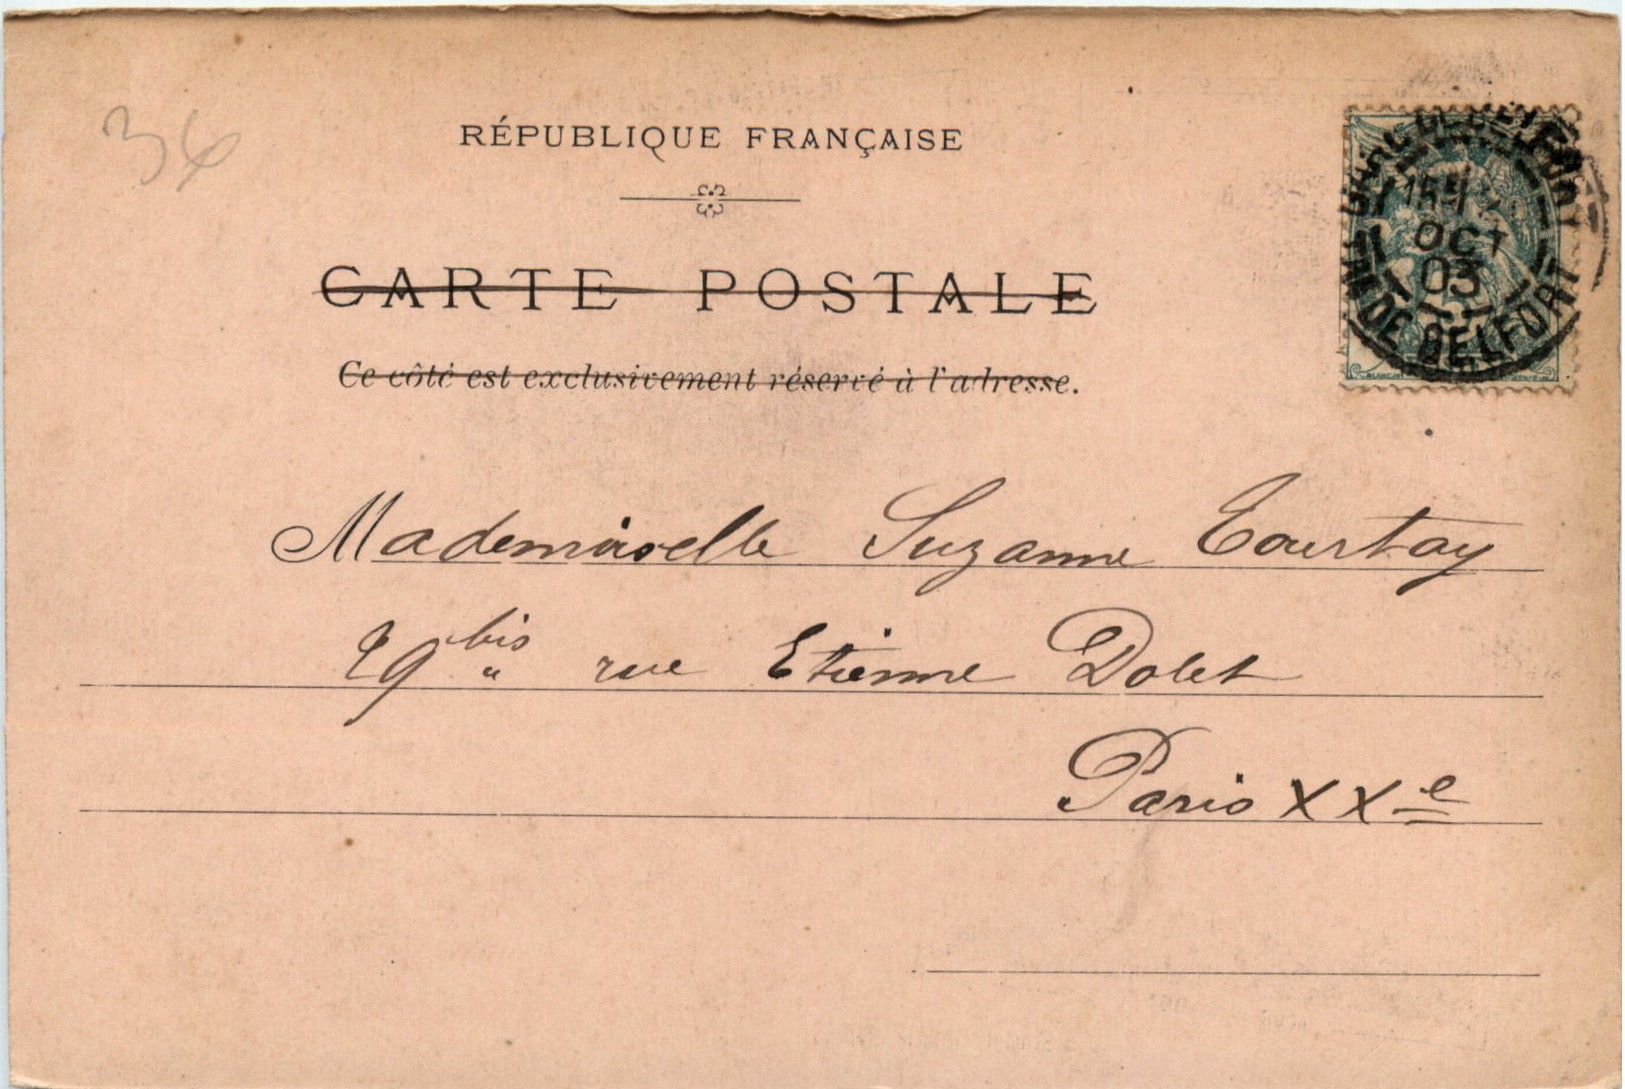 36
RÉPUBLIQUE FRANÇAISE
CARTE POSTALE
Ce côté est exclusivement réservé à l'adresse.
OCT
03
DE BELFORT
Mademoiselle Suzanne Tourtay
29 bis rue Etienne Dolet
Paris XXe